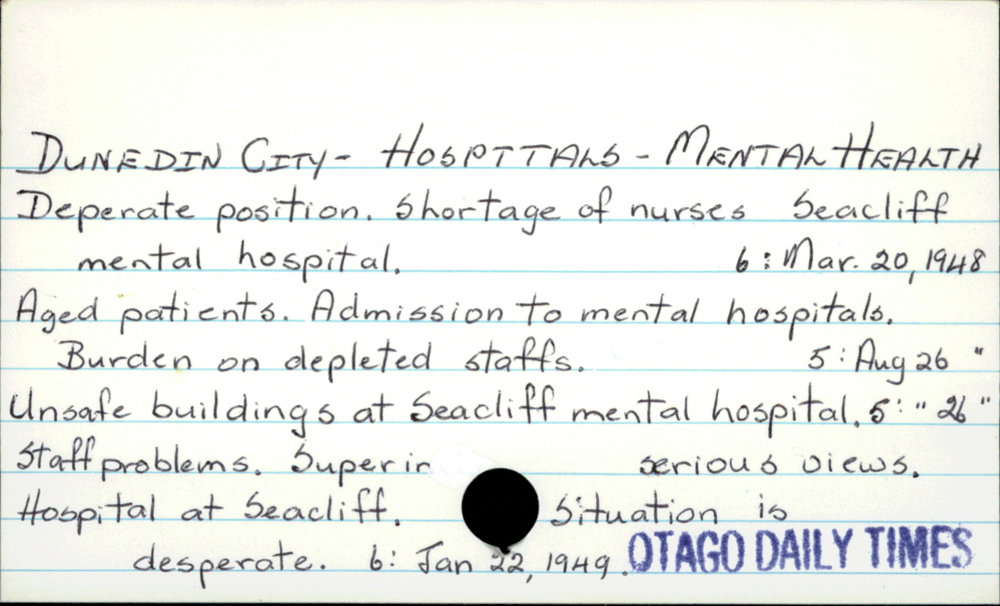 DUNEDIN CITY - HOSPITALS - MENTAL HEALTH
Deperate position. Shortage of nurses Seacliff
mental hospital. 6: Mar. 20, 1948
Aged patients. Admission to mental hospitals.
Burden on depleted staffs. 5: Aug 26 "
Unsafe buildings at Seacliff mental hospital. 5: " 26 "
Staff problems. Superin serious views.
Hospital at Seacliff. Situation is
desperate. 6: Jan 22, 1949. OTAGO DAILY TIMES